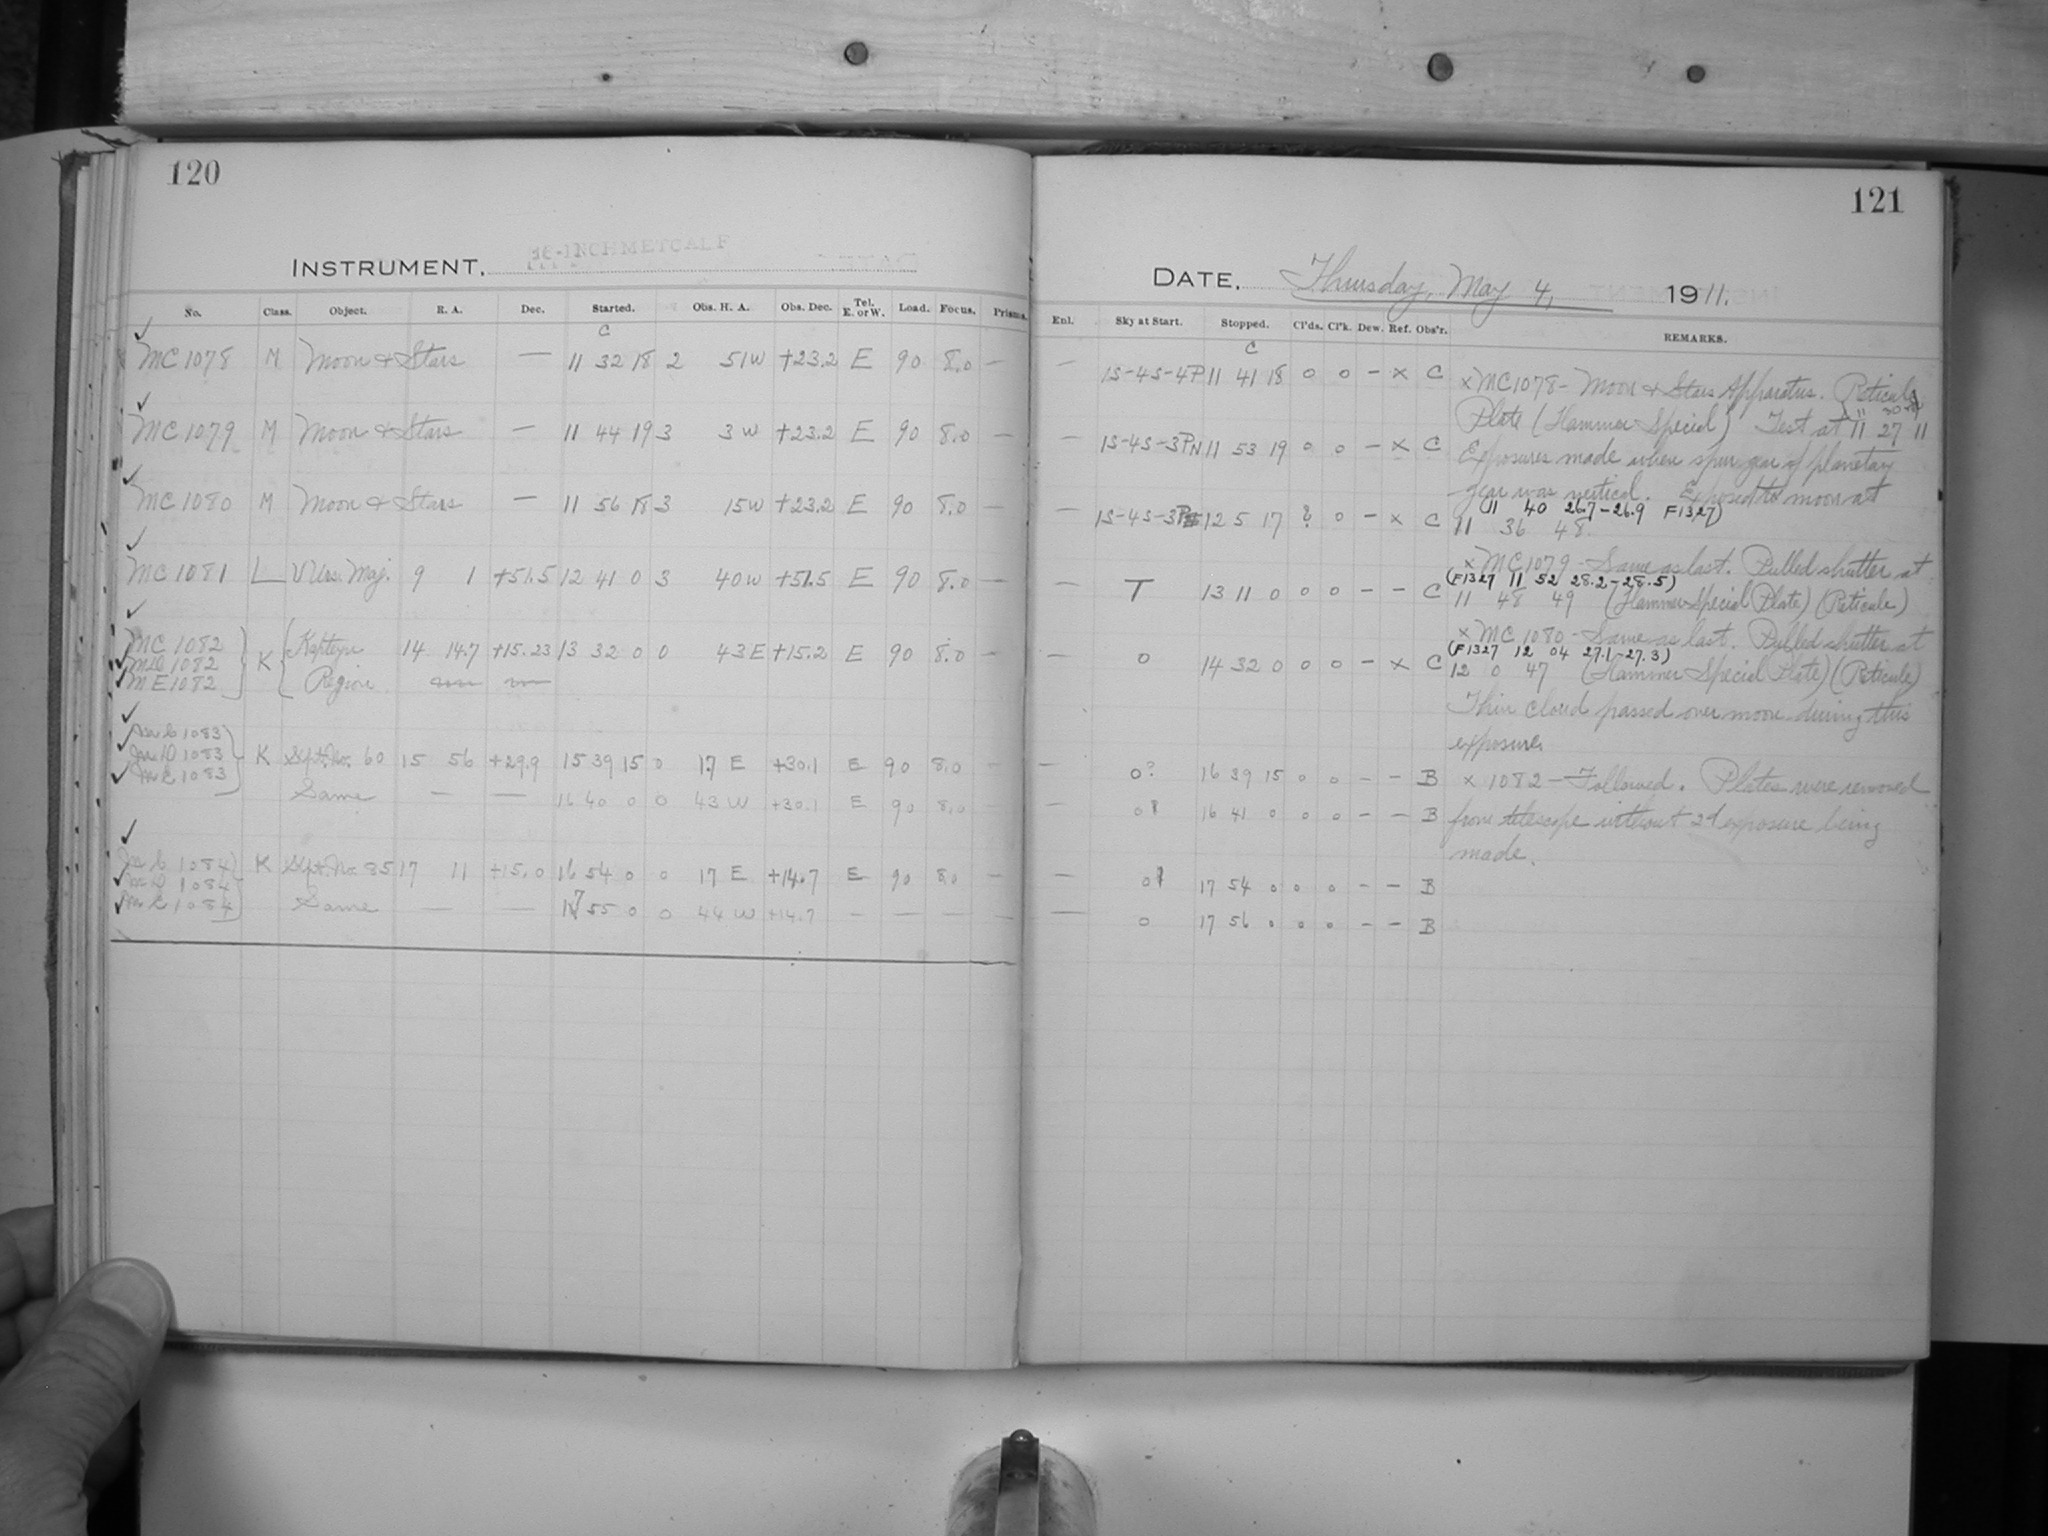 120
INSTRUMENT. 16-INCH METCALF
No. Class. Object. R. A. Dec. Started. Obs. H. A. Obs. Dec. Tel. E. or W. Load. Focus. Prisms.
C
MC 1078 M Moon & Stars — 11 32 18 2 51 W +23.2 E 90 8.0 —
MC 1079 M Moon & Stars — 11 44 19 3 3 W +23.2 E 90 8.0 —
MC 1080 M Moon & Stars — 11 56 18 3 15 W +23.2 E 90 8.0 —
MC 1081 L U Urs. Maj. 9 1 +51.5 12 41 0 3 40 W +51.5 E 90 8.0 —
MC 1082 Kapteyn 14 14.7 +15.23 13 32 0 0 43 E +15.2 E 90 8.0 —
MD 1082 K
ME 1082 Region
MC 1083
MD 1083 K Spt. No. 60 15 56 +29.9 15 39 15 0 17 E +30.1 E 90 8.0 —
ME 1083
Same — — 16 40 0 0 43 W +30.1 E 90 8.0 —
MC 1084 K Spt. No. 85 17 11 +15.0 16 54 0 0 17 E +14.7 E 90 8.0 —
MD 1084
ME 1084 Same — — 17 55 0 0 44 W +14.7 — — — —
121
DATE. Thursday, May 4, 1911.
Enl. Sky at Start. Stopped. Cl'ds. Cl'k. Dew. Ref. Obs'r. REMARKS.
C
— 1S-4S-4P 11 41 18 0 0 — x C
— 1S-4S-3PN 11 53 19 0 0 — x C
— 1S-4S-3P 12 5 17 ? 0 — x C
— T 13 11 0 0 0 — — C
— 0 14 32 0 0 0 — x C
— 0? 16 39 15 0 0 — — B
— 0 16 41 0 0 0 — — B
— 0 17 54 0 0 0 — — B
— 0 17 56 0 0 0 — — B
x MC 1078 – Moon & Stars Apparatus. Reticule
Plate (Hammer Special) Test at 11 27 11
Exposures made when spur gear of planetary
gear was vertical. Exposed to moon at
(11 40 26.7-26.9 F1327)
11 36 48.
x MC 1079 – Same as last. Pulled shutter at
(F1327 11 52 28.2-28.5)
11 48 49 (Hammer Special Plate) (Reticule)
x MC 1080 – Same as last. Pulled shutter at
(F1327 12 04 27.1-27.3)
12 0 47 (Hammer Special Plate) (Reticule)
Thin cloud passed over moon during this
exposure.
x 1082 – Followed. Plates were removed
from telescope without 2d exposure being
made.